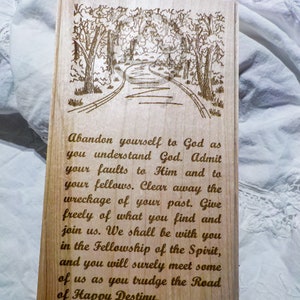 Abandon yourself to God as
you understand God. Admit
your faults to Him and to
your fellows. Clear away the
wreckage of your past. Give
freely of what you find and
join us. We shall be with you
in the Fellowship of the Spirit,
and you will surely meet some
of us as you trudge the Road
of Happy Destiny.